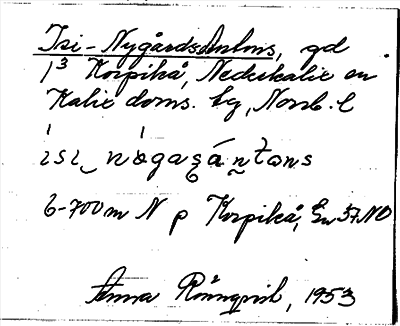 Isi-Nygårds Antons, gd
1³ Korpikå, Nederkalix en
Kalix doms. sg, Norrb. l
isi nøgaʒántɷns
6-700 m N p Korpikå, Ek 37 NO
Anna Rönnqvist, 1953